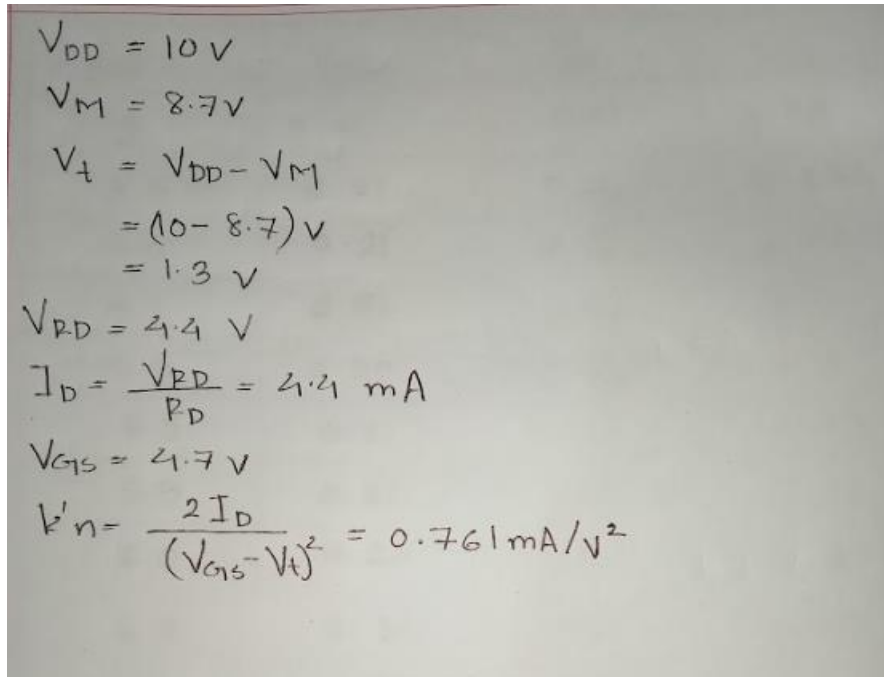 V_DD = 10 V
V_M = 8.7 V
V_t = V_DD - V_M
= (10 - 8.7) V
= 1.3 V
V_RD = 4.4 V
I_D = V_RD / R_D = 4.4 mA
V_GS = 4.7 V
k'n = 2 I_D / (V_GS - V_t)² = 0.761 mA/V²